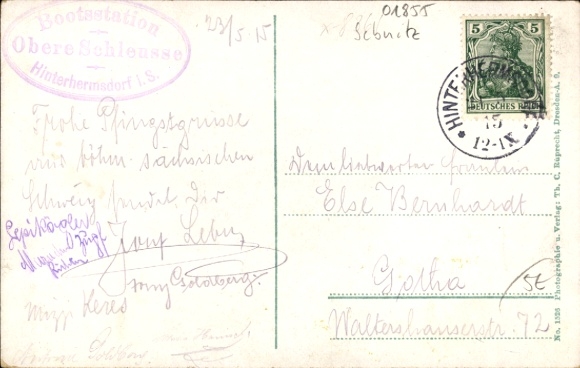 Bootsstation
Obere Schleusse
Hinterhermsdorf i. S.
23/5 15
01855
Sebnitz
5 5
DEUTSCHES REICH
HINTERHERMSDORF
15
12-1N
Frohe Pfingstgrüsse
aus böhm.-sächsischen
Schweiz sendet Dir
Josef
Goldberg.
Mizzi
Dem liebwerten Fräulein
Else Bernhardt
Gotha
Waltershauserstr. 72
No. 1326 Photographie u. Verlag: Th. C. Ruprecht, Dresden-A. 9.